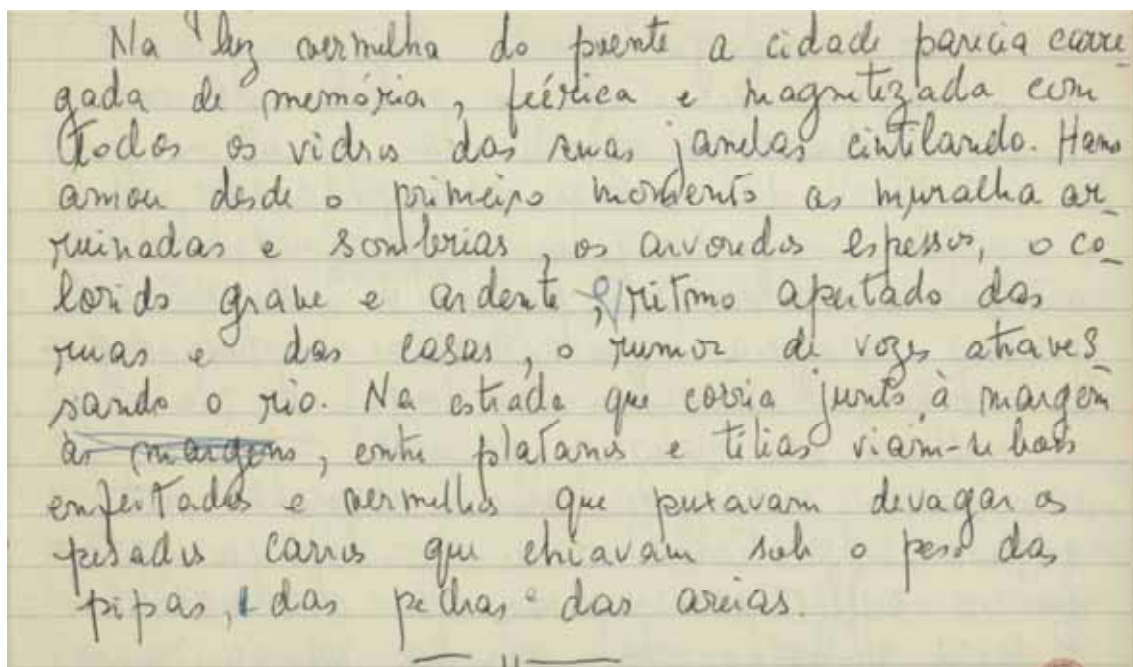 Na luz vermelha do poente a cidade parecia carre-
gada de memória, feérica e magnetizada com
todos os vidros das suas janelas cintilando. Hans
amou desde o primeiro momento as muralha ar-
ruinadas e sombrias, os arvoredos espessos, o co-
lorido grave e ardente, o ritmo apertado das
ruas e das casas, o rumor de vozes atraves-
sando o rio. Na estrada que corria junto à margem
as margens, entre platanos e tilias viam-se bois
enfeitados e vermelhos que puxavam devagar os
pesados carros que chiavam sob o peso das
pipas, das pedras e das areias.